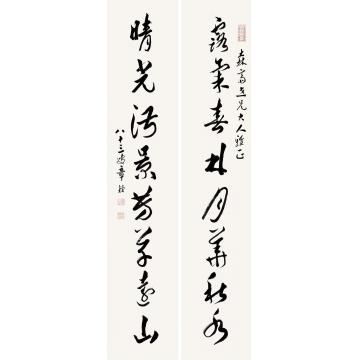 露气春林月华秋水
森斋五兄大人雅正
晴光淑景芳草远山
八十三叟章梫